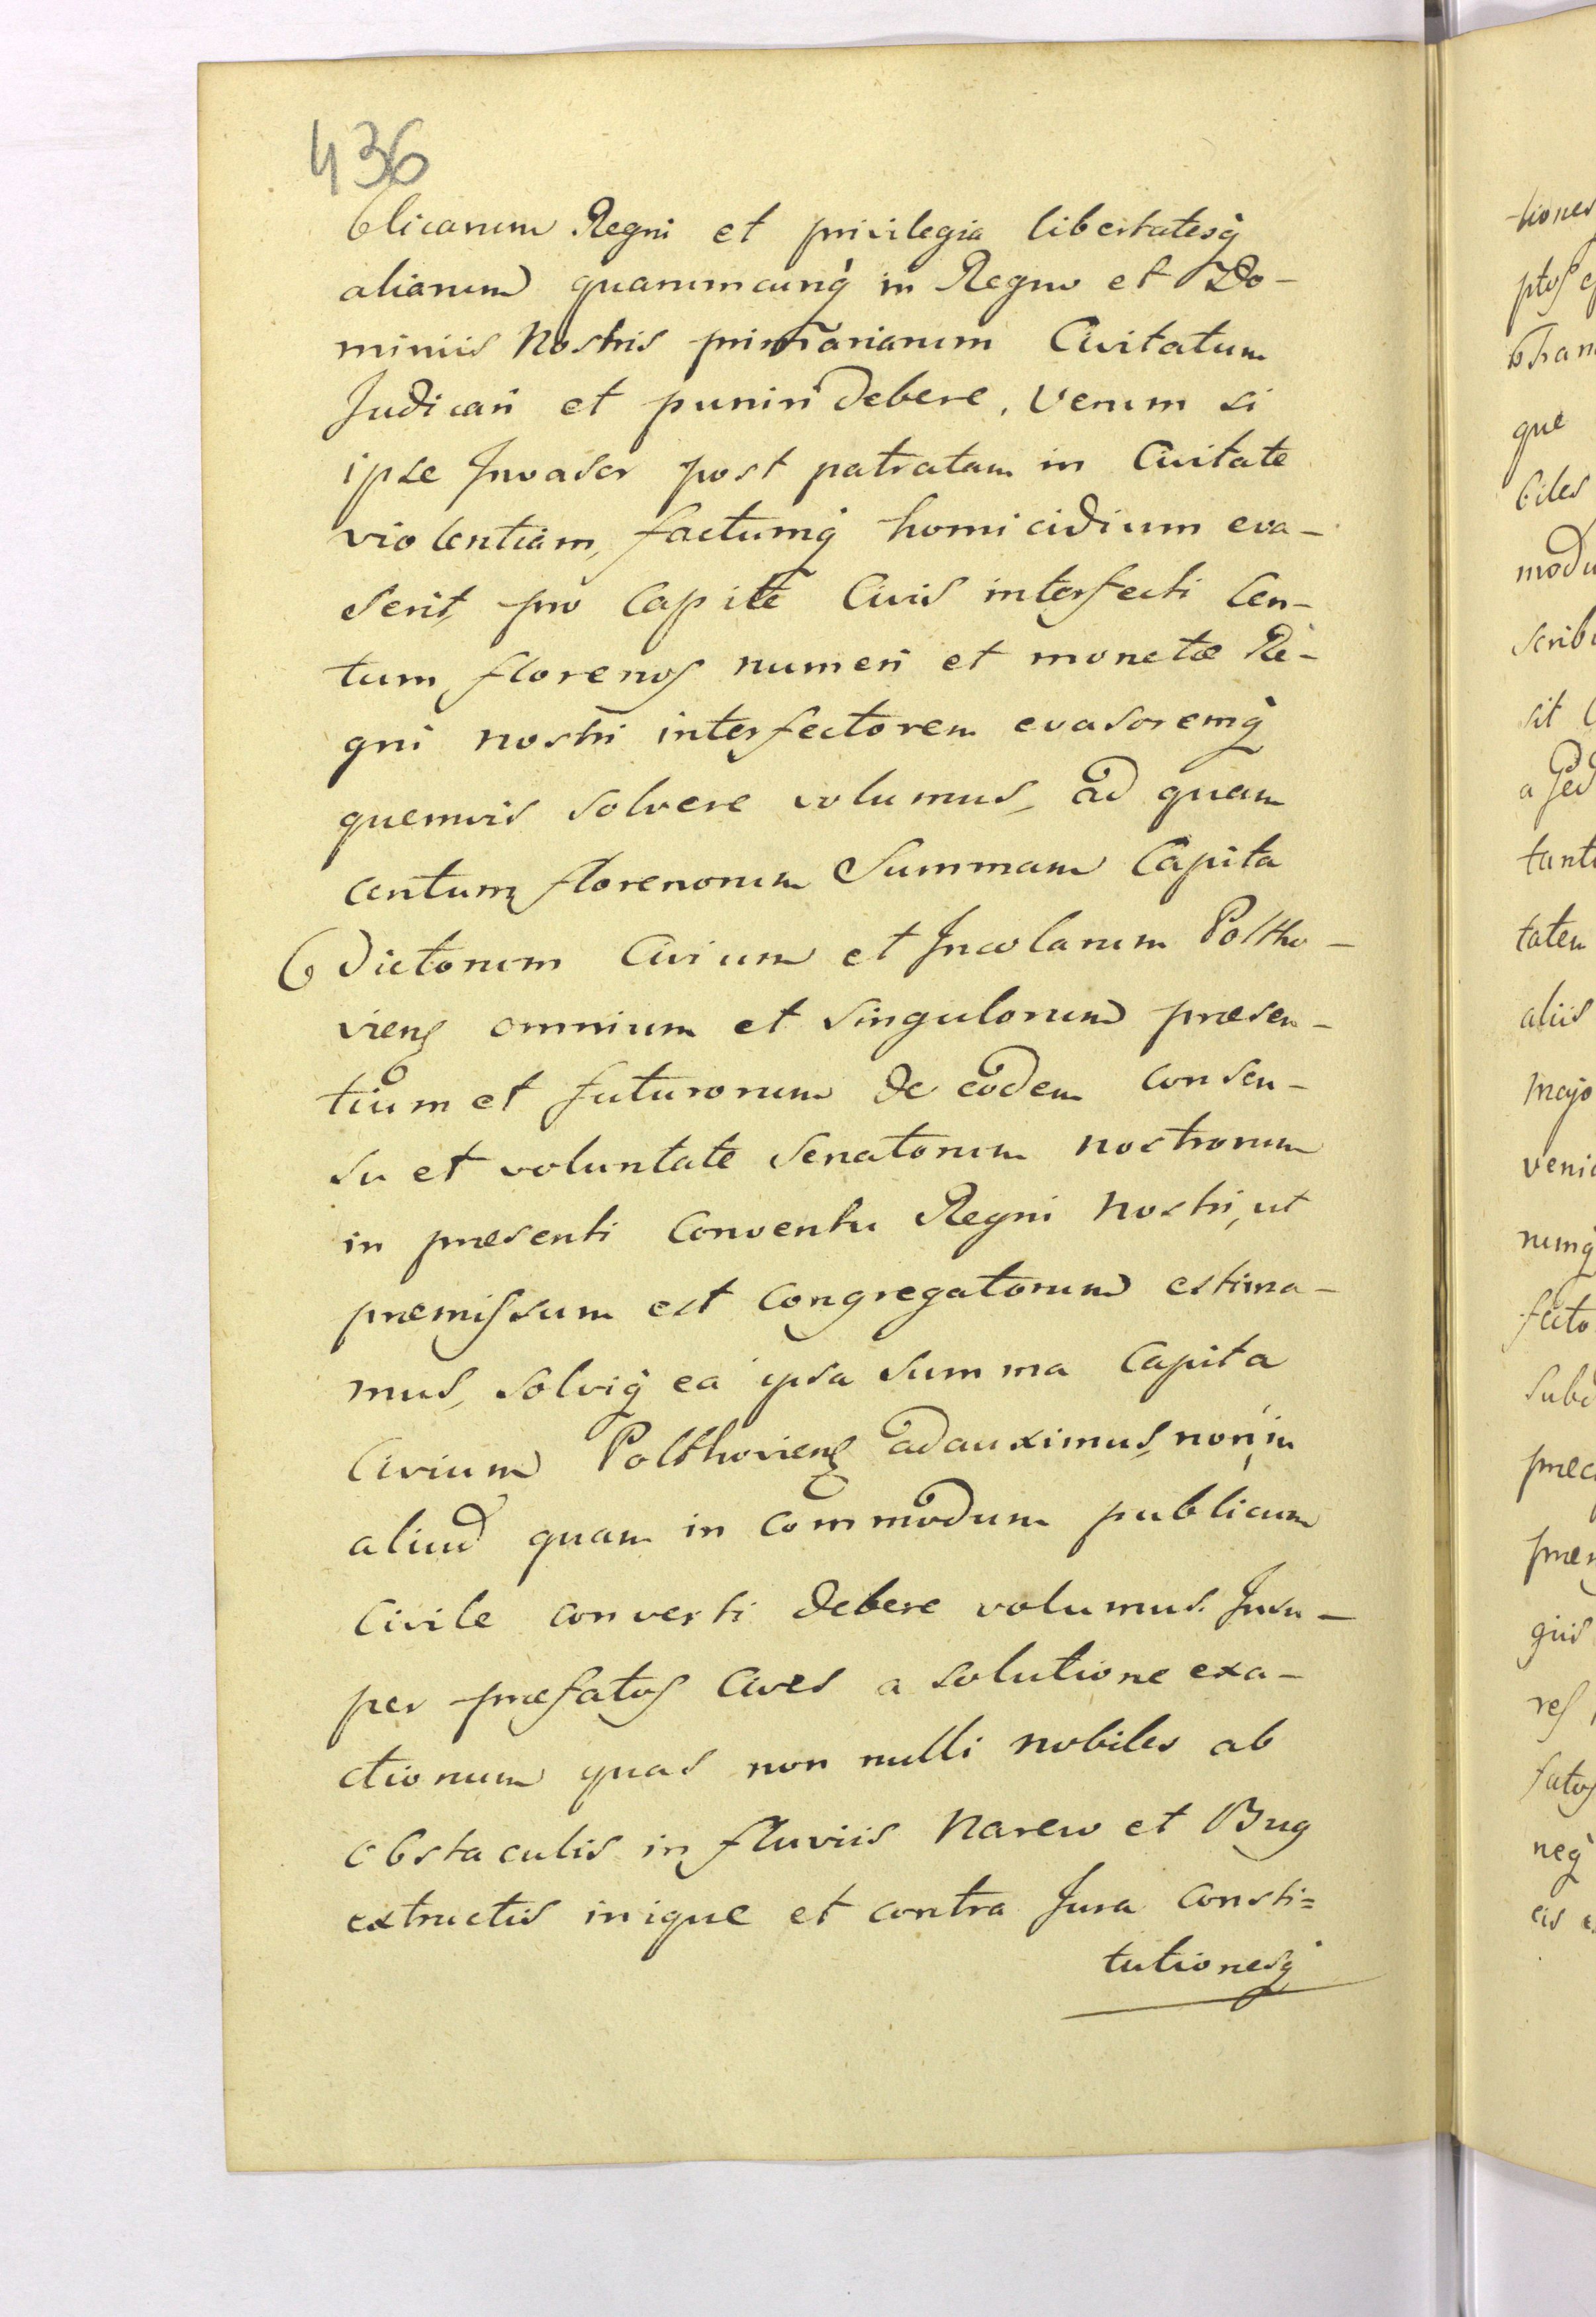 436
blicarum Regni et privilegia libertatesq́
aliarum quarumcunq́ in Regno et Do-
miniis Nostris primariarum Civitatum
Judicari et puniri debere, Verum si
ipse Invasor post patratam in Civitate
violentiam, factumq́ homicidium eva-
serit, pro Capite Civis interfecti Cen-
tum florenos numeri et monetæ Re-
gni nostri interfectorem evasoremq́
quemvis solvere volumus, ad quam
centum florenorum Summam Capita
Dictorum Civium et Incolarum Poltho-
viens omnium et singulorum præsen-
tium et futurorum de eodem consen-
su et voluntate Senatorum nostrorum
in præsenti Conventu Regni Nostri, ut
præmissum est Congregatorum estima-
mus, solviq́ ea ipsa summa Capita
Civium Polthoviens adauximus, non in
aliud quam in commodum publicum
Civile converti debere volumus. Insu-
per præfatos Cives a solutione exa-
ctionum quas non nulli nobiles ab
obstaculis in fluviis Narew et Bug
extructis inique et contra Jura Consti=
tutionesq́
-tiones
ptos
que
biles
modu
scrib
sit
tant
taten
aliis
majo
veni
numq́
fecto
subd
præc
giis
res
fatos
neq́
eis